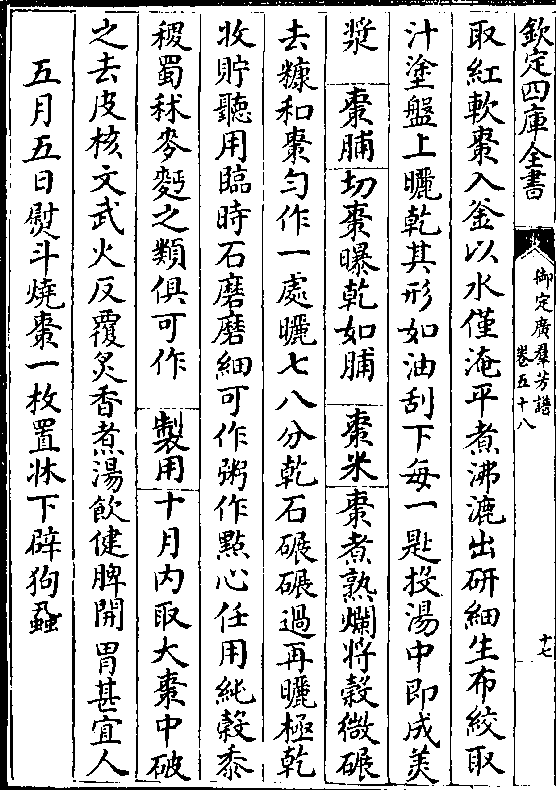 欽定四庫全書
御定廣羣芳譜
卷五十八
十七
取紅軟棗入釜以水僅淹平煮沸漉出研細生布絞取
汁塗盤上曬乾其形如油刮下每一匙投湯中即成美
漿 棗脯 切棗曝乾如脯 棗米 棗煮熟爛將榖微碾
去糠和棗勻作一處曬七八分乾石碾碾過再曬極乾
收貯聽用臨時石磨磨細可作粥作點心任用純榖黍
稷蜀秫麥麪之類俱可作 製用 十月內取大棗中破
之去皮核文武火反覆炙香煮湯飲健脾開胃甚宜人
五月五日熨斗燒棗一枚置牀下辟狗蝨